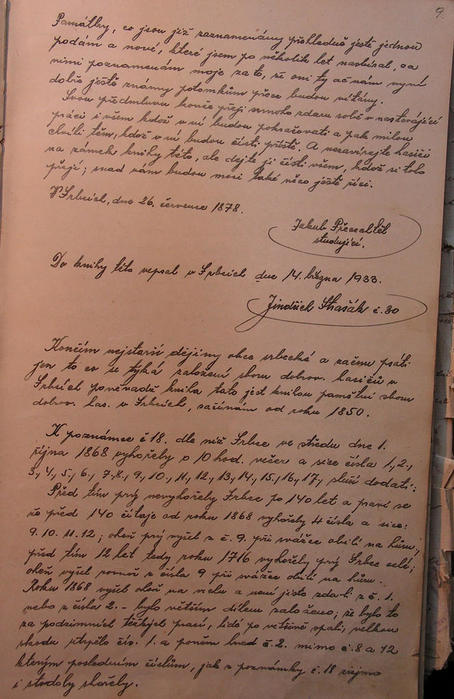 9.
Památky, co jsou již zaznamenány přehledně ještě jednou
podám a nové, které jsem po několik let nasbíral, za
nimi poznamenám maje za to, že oni ty ač nám nyní
dobře ještě známy potomkům přece budou vítány.
Svou předmluvu konče přeji mnoho zdaru sobě v nastávající
práci i všem kdož v ní budou pokračovati a pak milou
chvíli těm, kdož v ní budou čísti příště. A nezavírejte hasiči
na zámek knihy této, ale dejte ji čísti všem, kdož si toho
přejí, snad vám budou moci také něco ještě říci.
V Srbcích, dne 26. července 1878.
Jakub
studující.
Do knihy této vepsal v Srbcích dne 14. března 1933.
Jindřich Stasák č. 30
Končím nejstarší dějiny obce srbecké a začnu psáti
jen to co se týká založení sboru dobrov. hasičů v
Srbcích poněvadž kniha tato jest knihou pamětní sboru
dobrov. has. v Srbcích, začínám od roku 1850.
K poznámce č 18. dle níž Srbce ve středu dne 1.
října 1868 vyhořely o 10 hod. večer a sice čísla 1, 2,
3, 4, 5, 6, 7, 8, 9, 10, 11, 12, 13, 14, 15, 16, 17, sluší dodati:
Před tím prý nevyhořely Srbce po 140 let a praví se
že před 140 čítaje od roku 1868 vyhořely 4 čísla a sice:
9. 10. 11. 12; oheň prý vyšel z č. 9. při svážce obilí na hůru;
před tím 12 let tedy roku 1716 vyhořely prý Srbce celé;
oheň vyšel rovněž z čísla 9 při svážce obilí na hůru.
Roku 1868 vyšel oheň na vrchu a není jisto zda-li z č. 1.
nebo z čísla 2. – bylo větším dílem založeno; že bylo to
za podzimních těžkých prací, lidé po většině spali, velkou
škodu utrpělo čís. 1. a potom hned č. 2. mimo č. 8 a 12
kterým posledním číslům, jak z poznámky č. 18 zřejmo
i stodoly shořely.